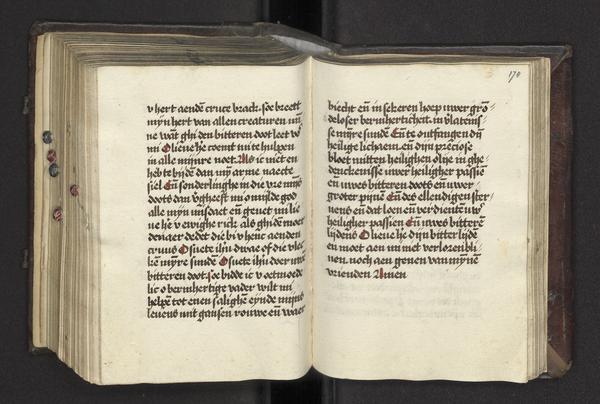 v hert aendē cruce brack. soe breect
mijn hert van allen creaturen mī
ne wāt ghi den bitteren doot leet vo
mi O lieue he coemt mi te hulpen
in alle mijnre noet. Als ic niet en
hebt bi dē dan mijn arme naecte
siel Eñ sonderlinghe in die vre mijs
doots dan vgheeft mi o milde god
alle mijn misdaet eñ geuet mi
ne he v ewighe rick als ghi dē moer
denaer dedet die bi v henc aenden
cruus O suete ihū dwae of die vlec
kē mijre sundē O suete ihū doer uwē
bitteren doot. soe bidde ic v oetmoede
lic o bermhertige vader wilt mi
helpē tot enen salighē eynde mijns
leuens mit gansen rouwe eñ waer
170
biecht eñ in sekeren hoep uwer grō
deloser bermherticheit. in vlatenis
se mijre sundē Eñ te ontfangen dijn
heilige lichaem. eñ dijn preciose
bloet mitten heilighen olije in ghe
denckenisse uwer heiligher passiē
eñ uwes bitteren doots eñ uwer
groter pijnē Eñ des ellendigen ster
uens eñ dat loen eñ verdiente uw
heiligher passien Eñ uwes bitterē
lijdens O lieue he dijn bitter lidē
en moet aen mi niet verloren bli
uen. noch aen genen van mijnē
vrienden Amen